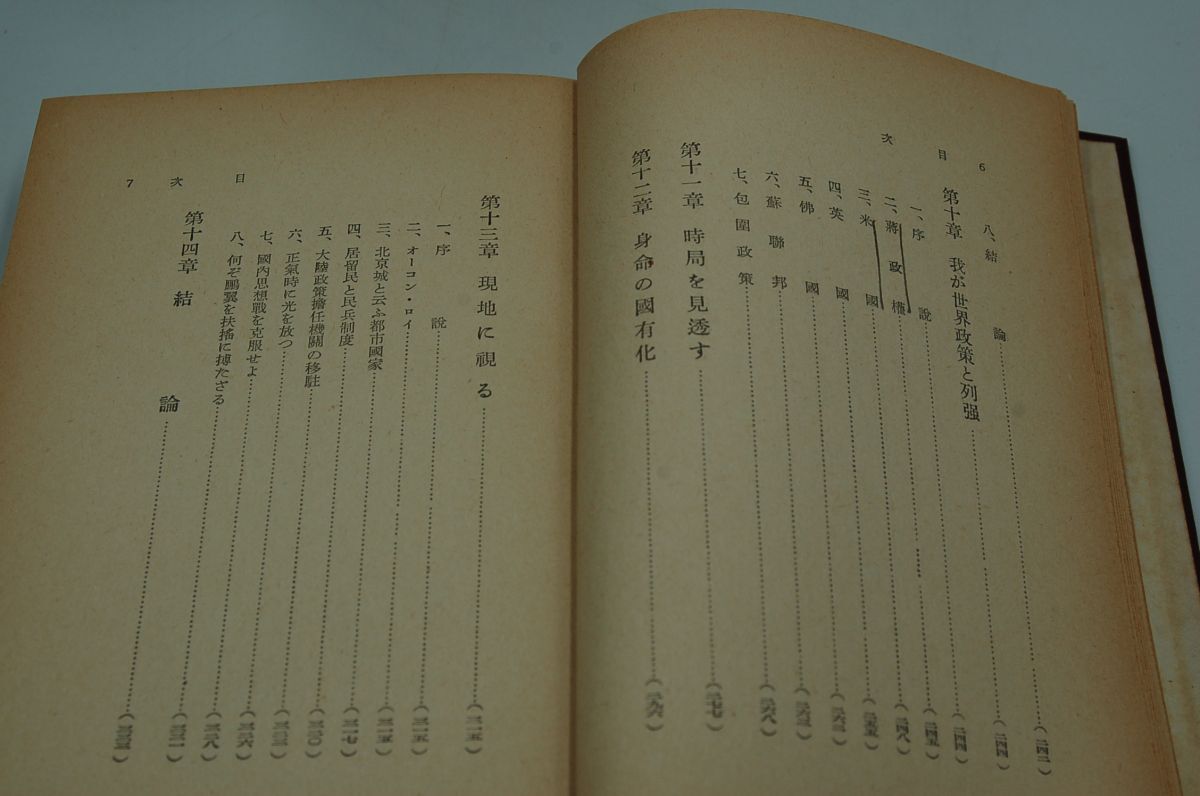 目次 6
八、結論……(二四二)
第十章 我が世界政策と列强……(二四四)
一、序說……(二四四)
二、蔣政權……(二四五)
三、米國……(二四八)
四、英國……(二五五)
五、佛國……
六、蘇聯邦……
七、包圍政策……(二六八)
第十一章 時局を見透す……(二七七)
第十二章 身命の國有化……(二九六)
目次 7
第十三章 現地に視る……(三一五)
一、序說……(三一五)
二、オーコン・ロイ……(三一五)
三、北京城と云ふ都市國家……(三一七)
四、居留民と民兵制度……(三二〇)
五、大陸政策擔任機關の移駐……
六、正氣時に光を放つ……(三二六)
七、國內思想戰を克服せよ……(三二八)
八、何ぞ鵬翼を扶搖に搏たざる……(三三一)
第十四章 結論……